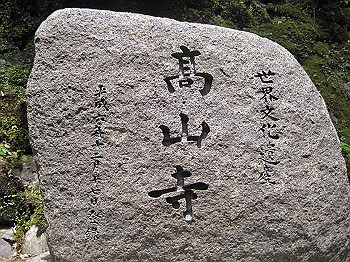 世界文化遺産
髙山寺
平成六年十二月十七日登録